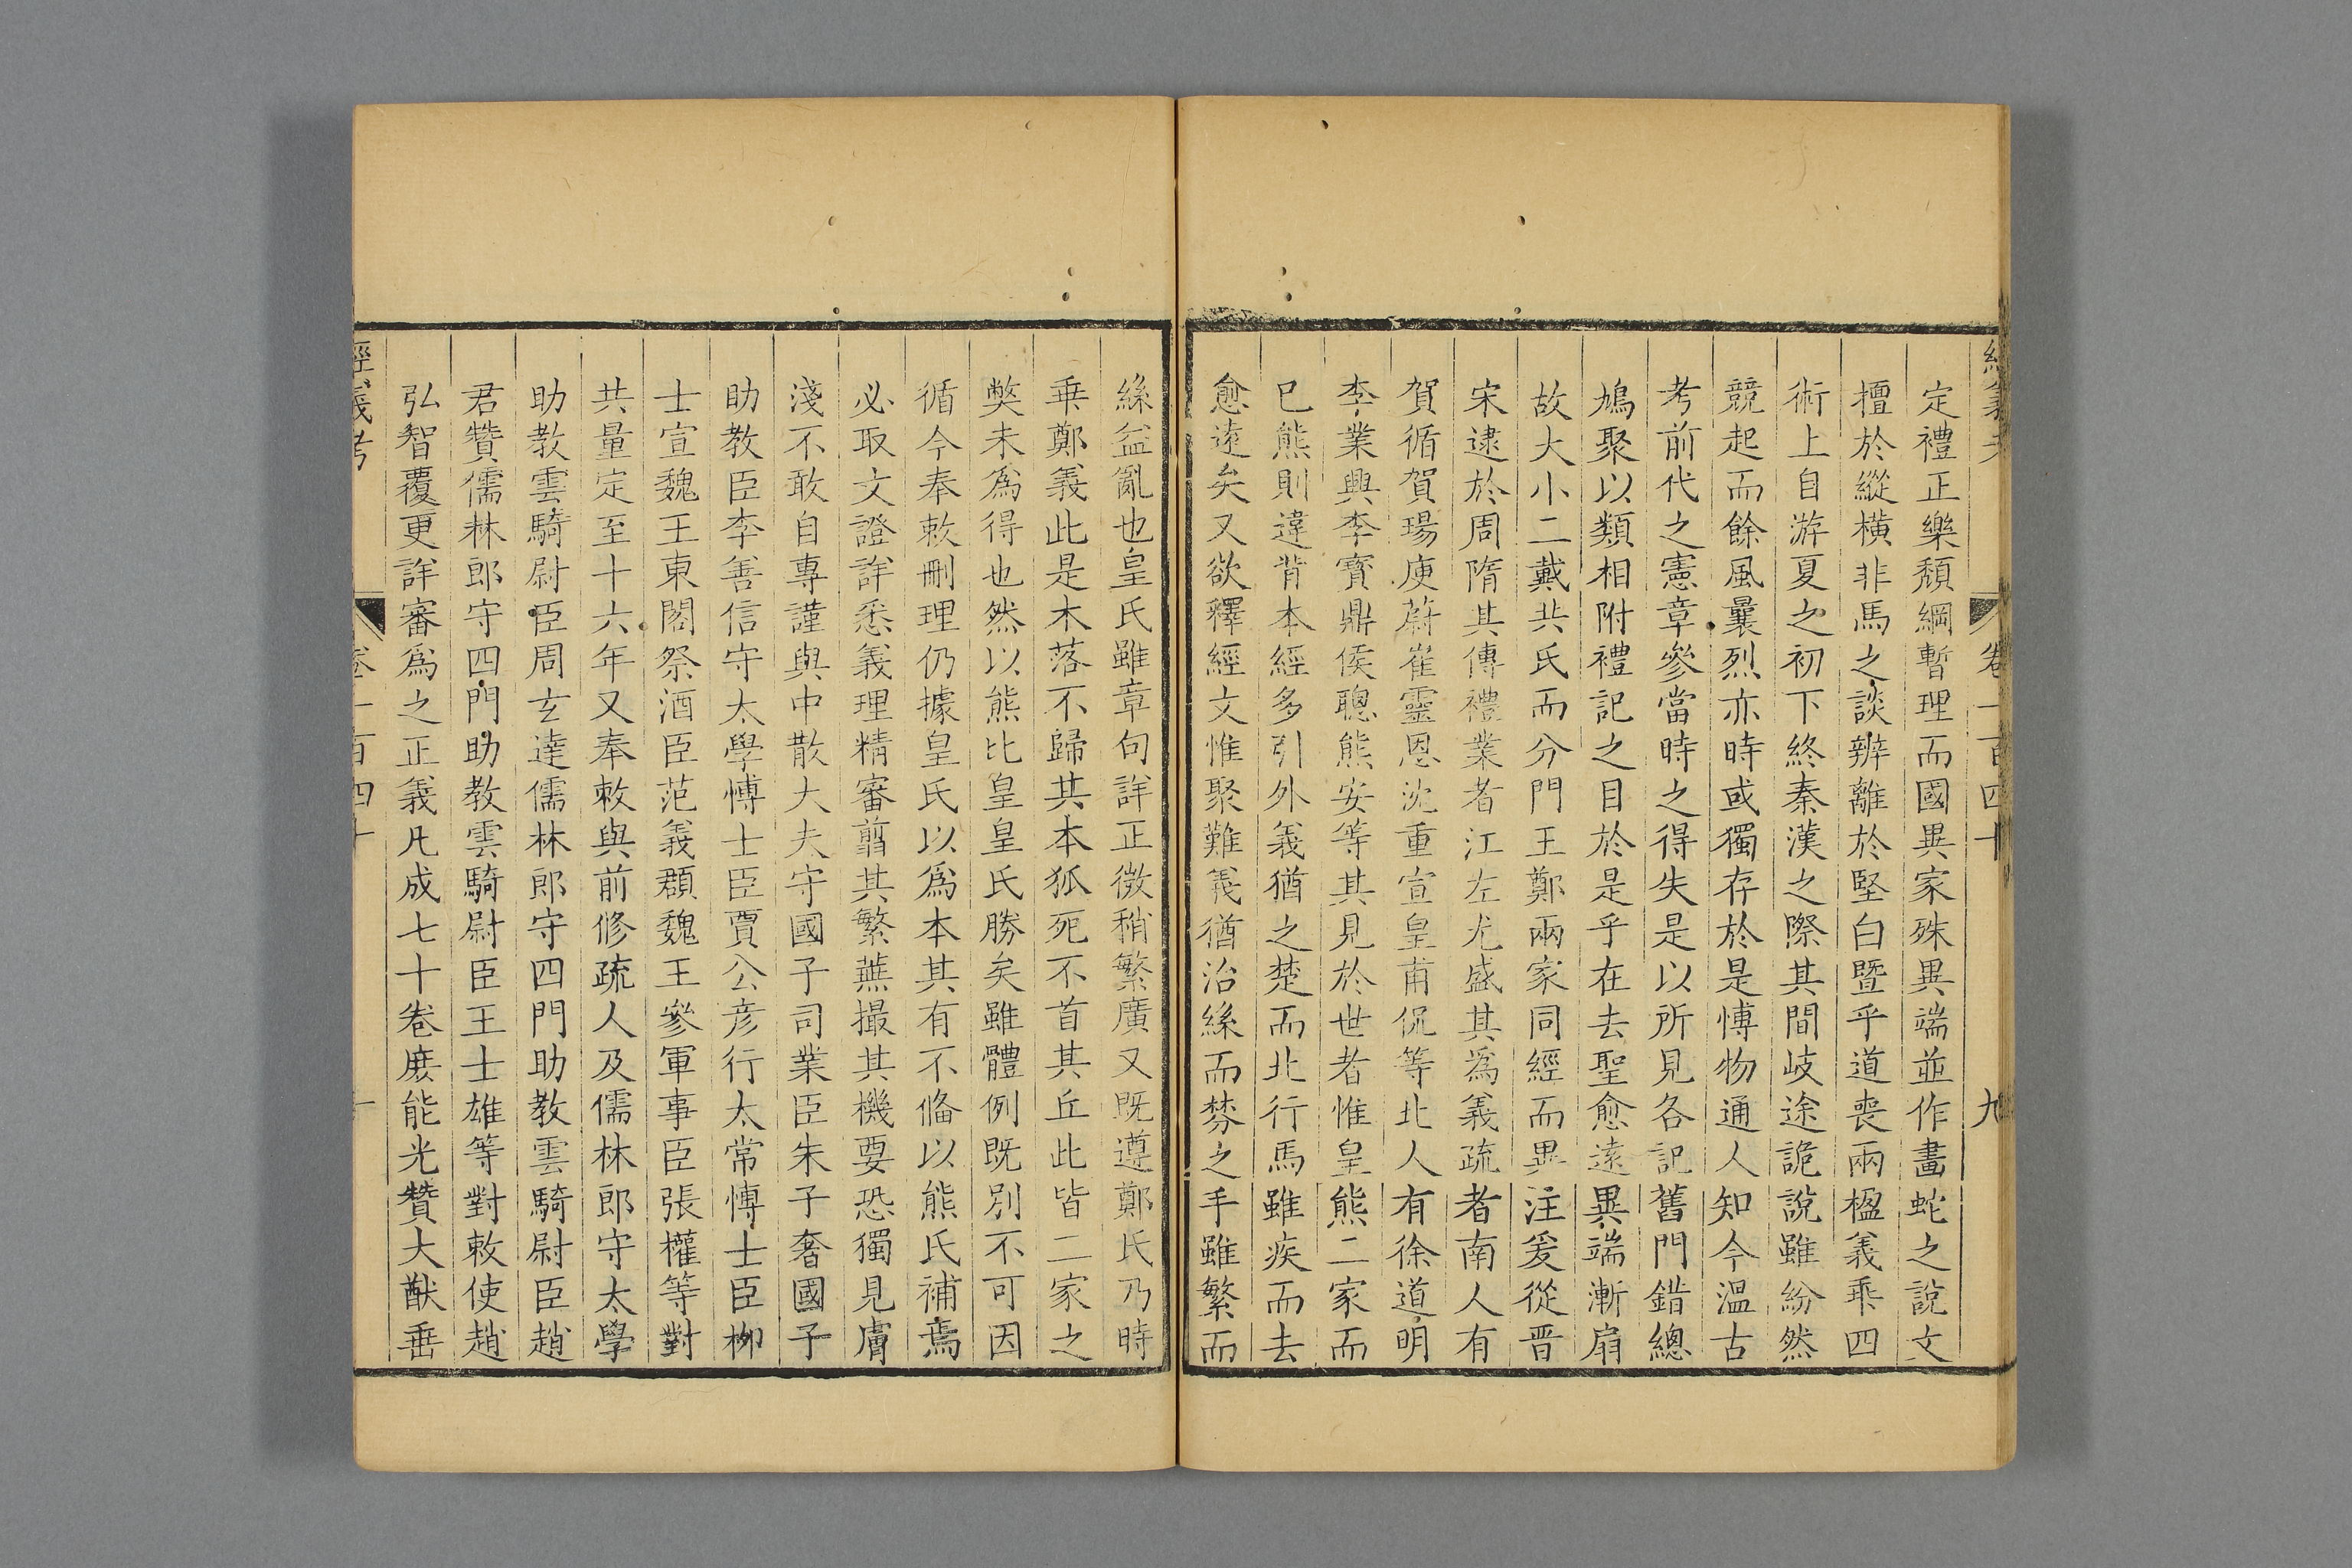 經義考
卷一百四十
九
定禮正樂頹綱暫理而國異家殊異端並作畫蛇之說文
擅於縱橫非馬之談辨離於堅白暨乎道喪兩楹義乖四
術上自游夏之初下終秦漢之際其間岐途詭說雖紛然
競起而餘風曩烈亦時或獨存於是愽物通人知今溫古
考前代之憲章參當時之得失是以所見各記舊門錯總
鳩聚以類相附禮記之目於是乎在去聖愈遠異端漸扇
故大小二戴共氏而分門王鄭兩家同經而異注爰從晋
宋逮於周隋其傳禮業者江左尤盛其爲義疏者南人有
賀循賀瑒庾蔚崔靈恩沈重宣皇甫侃等北人有徐道明
李業興李寳鼎侯聰熊安等其見於世者惟皇熊二家而
巳熊則違背本經多引外義猶之楚而北行馬雖疾而去
愈遠矣又欲釋經文惟聚難義猶治絲而棼之手雖繁而
絲益亂也皇氏雖章句詳正微稍繁廣又既遵鄭氏乃時
乖鄭義此是木落不歸其本狐死不首其丘此皆二家之
獘未爲得也然以熊比皇皇氏勝矣雖體例既别不可因
循今奉敕刪理仍據皇氏以爲本其有不偹以熊氏補焉
必取文證詳悉義理精審翦其繁蕪撮其機要恐獨見膚
淺不敢自專謹與中散大夫守國子司業臣朱子奢國子
助教臣李善信守太學愽士臣賈公彦行太常愽士臣柳
士宣魏王東閤祭酒臣范義頵魏王參軍事臣張權等對
共量定至十六年又奉敕與前修疏人及儒林郎守太學
助教雲騎尉臣周玄達儒林郎守四門助教雲騎尉臣趙
君贊儒林郎守四門助教雲騎尉臣王士雄等對敕使趙
弘智覆更詳審爲之正義凡成七十卷庶能光贊大猷垂
經義考
卷一百四十